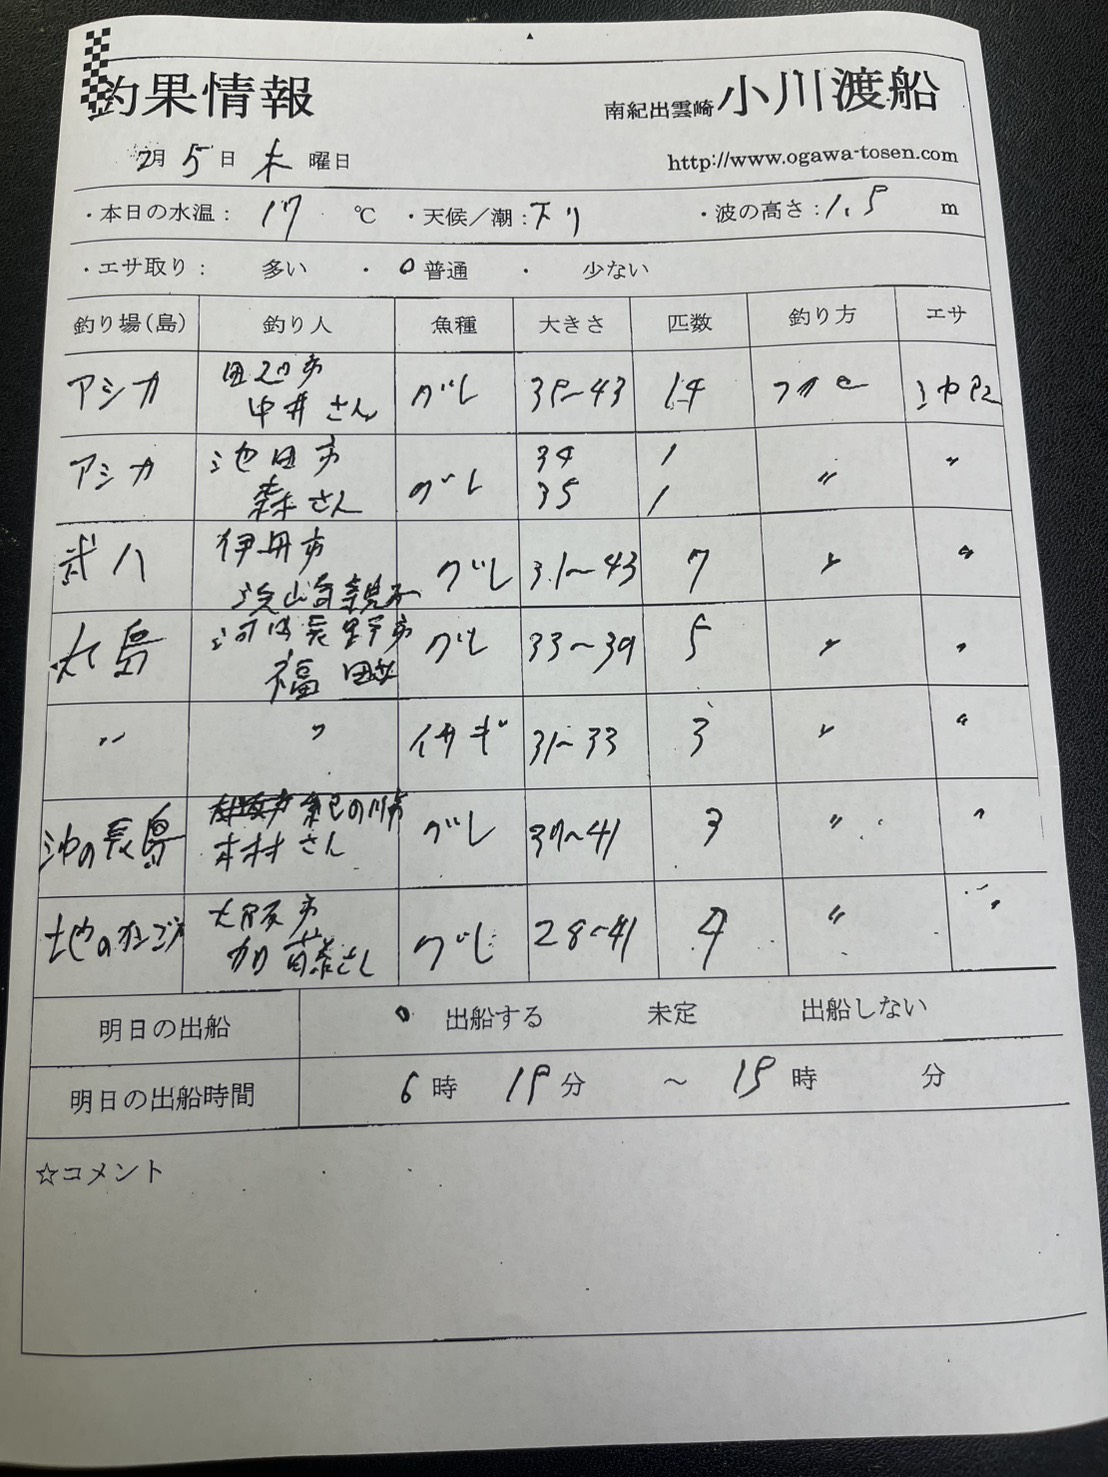 釣果情報
南紀出雲崎 小川渡船
2月 5日 木 曜日
http://www.ogawa-tosen.com
・本日の水温: 17 ℃ ・天候/潮: 下り ・波の高さ: 1.5 m
・エサ取り: 多い ・ 0 普通 ・ 少ない
釣り場(島) 釣り人 魚種 大きさ 匹数 釣り方 エサ
アシカ 田辺市 グレ 35~43 14 フカセ
中井さん
アシカ 池田市 グレ 34 1 〃 〃
森さん 35 1
武八 伊丹市 グレ 31~43 7 〃 〃
浜崎親子
大島 河内長野市 グレ 33~39 5 〃 〃
福田
〃 〃 イサギ 31~33 3 〃 〃
沖の長島 紀の川市 グレ 37~41 3 〃 〃
木村さん
地の 大阪市 グレ 28~41 4 〃 〃
加藤さん
明日の出船 0 出船する 未定 出船しない
明日の出船時間 6時 15分 ~ 15時 分
☆コメント